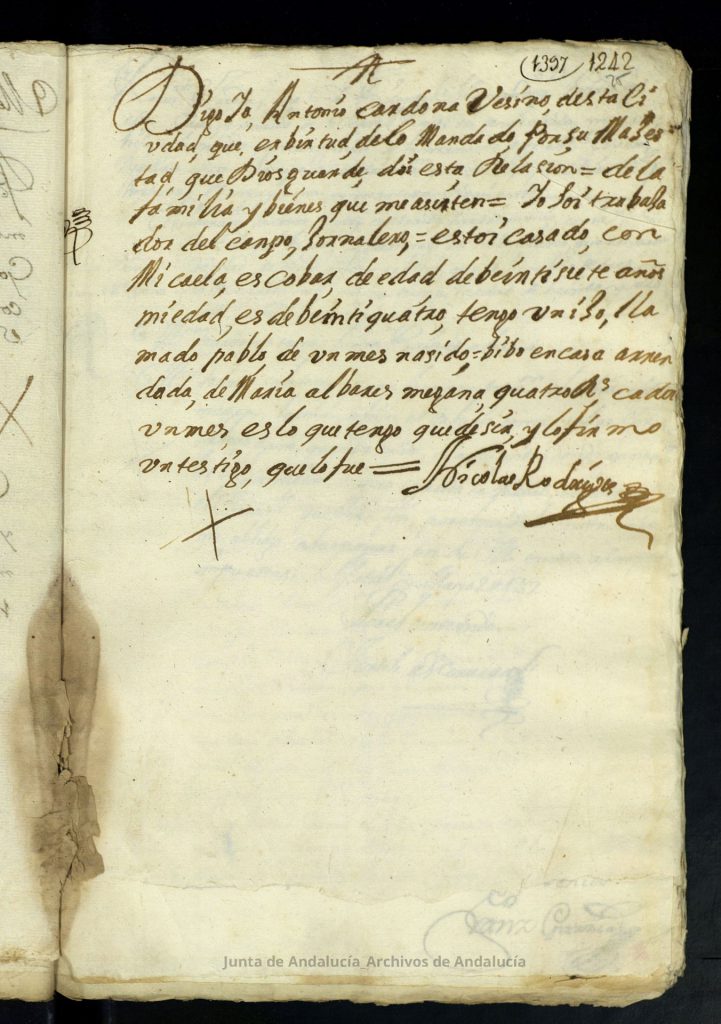 1397 1242
25
Digo Yo, Antonio cardona Vesino, desta Ci
udad, que, enbirtud, delo Mandado, Porsu Mages
tad, que Dios guarde, doi esta Relasion = de la
familia y bienes que measisten = Yo soi trabaja
dor del canpo, Jornalero, = estoi casado, con
Micaela, escobar, de edad debeintisiete años
miedad, es de beintiquatro, tengo un ijo, lla
mado pablo de un mes nasido = bibo en casa arren
dada, de Maria albares megana, quatro Rs cada
un mes es lo que tengo que desir, y lo firmo
un testigo, que lo fue = Nicolas Rodrigues
Junta de Andalucía_Archivos de Andalucía